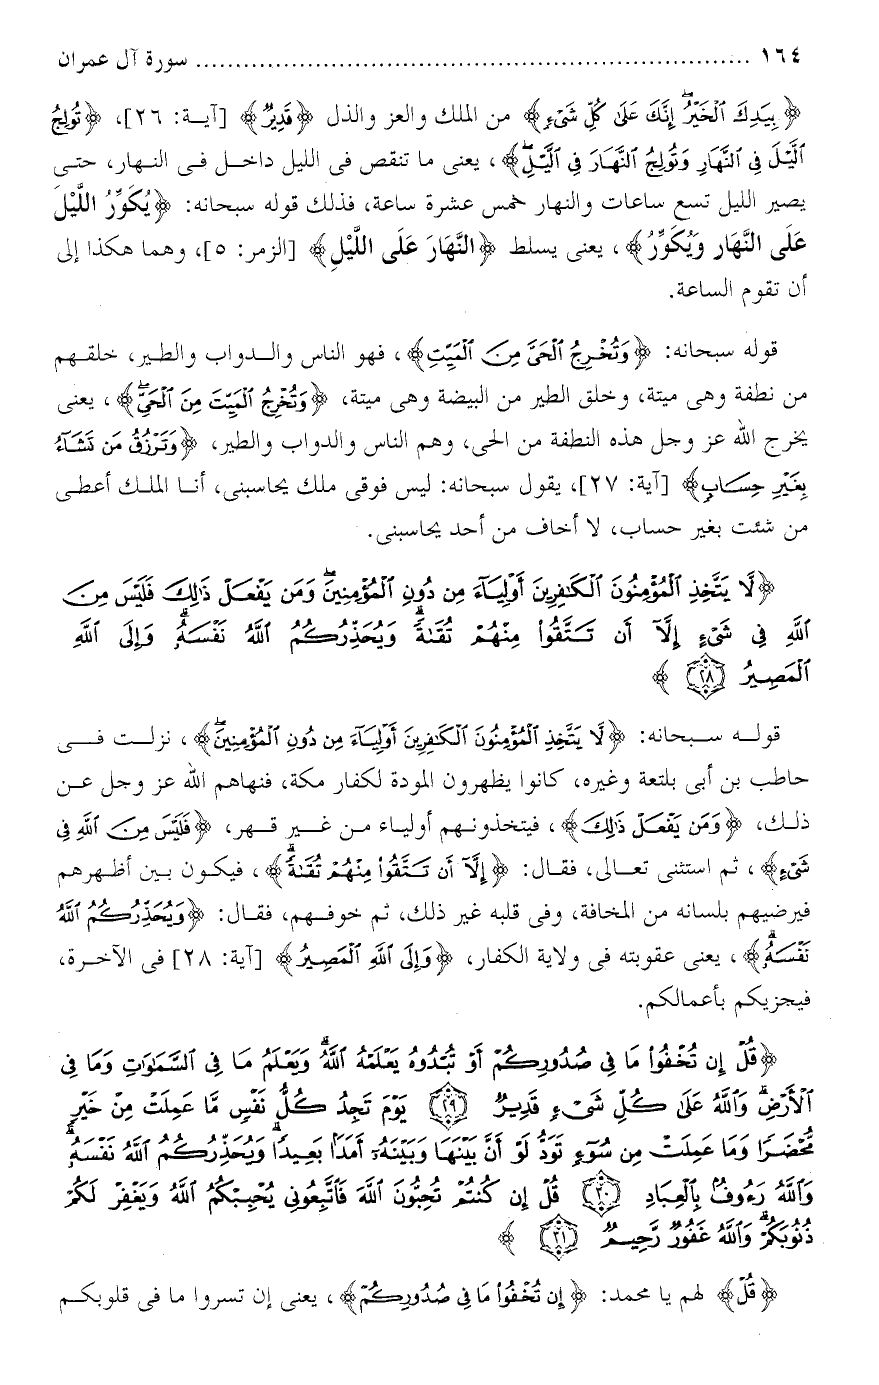 ١٦٤ ............................................................ سورة آل عمران
﴿بِيَدِكَ الْخَيْرُ إِنَّكَ عَلَىٰ كُلِّ شَيْءٍ﴾ من الملك والعز والذل ﴿قَدِيرٌ﴾ [آية: ٢٦]، ﴿تُولِجُ
اللَّيْلَ فِي النَّهَارِ وَتُولِجُ النَّهَارَ فِي اللَّيْلِ﴾، يعنى ما تنقص فى الليل داخل فى النهار، حتى
يصير الليل تسع ساعات والنهار خمس عشرة ساعة، فذلك قوله سبحانه: ﴿يُكَوِّرُ اللَّيْلَ
عَلَى النَّهَارِ وَيُكَوِّرُ﴾، يعنى يسلط ﴿النَّهَارَ عَلَى اللَّيْلِ﴾ [الزمر: ٥]، وهما هكذا إلى
أن تقوم الساعة.
قوله سبحانه: ﴿وَتُخْرِجُ الْحَيَّ مِنَ الْمَيِّتِ﴾، فهو الناس والدواب والطير، خلقهم
من نطفة وهى ميتة، وخلق الطير من البيضة وهى ميتة، ﴿وَتُخْرِجُ الْمَيِّتَ مِنَ الْحَيِّ﴾، يعنى
يخرج الله عز وجل هذه النطفة من الحى، وهم الناس والدواب والطير، ﴿وَتَرْزُقُ مَن تَشَاءُ
بِغَيْرِ حِسَابٍ﴾ [آية: ٢٧]، يقول سبحانه: ليس فوقى ملك يحاسبنى، أنا الملك أعطى
من شئت بغير حساب، لا أخاف من أحد يحاسبنى.
﴿لَّا يَتَّخِذِ الْمُؤْمِنُونَ الْكَافِرِينَ أَوْلِيَاءَ مِن دُونِ الْمُؤْمِنِينَ ۖ وَمَن يَفْعَلْ ذَٰلِكَ فَلَيْسَ مِنَ
اللَّهِ فِي شَيْءٍ إِلَّا أَن تَتَّقُوا مِنْهُمْ تُقَاةً ۗ وَيُحَذِّرُكُمُ اللَّهُ نَفْسَهُ ۗ وَإِلَى اللَّهِ
الْمَصِيرُ ٢٨﴾
قوله سبحانه: ﴿لَّا يَتَّخِذِ الْمُؤْمِنُونَ الْكَافِرِينَ أَوْلِيَاءَ مِن دُونِ الْمُؤْمِنِينَ ۖ﴾، نزلت فى
حاطب بن أبى بلتعة وغيره، كانوا يظهرون المودة لكفار مكة، فنهاهم الله عز وجل عن
ذلك، ﴿وَمَن يَفْعَلْ ذَٰلِكَ﴾، فيتخذونهم أولياء من غير قهر، ﴿فَلَيْسَ مِنَ اللَّهِ فِي
شَيْءٍ﴾، ثم استثنى تعالى، فقال: ﴿إِلَّا أَن تَتَّقُوا مِنْهُمْ تُقَاةً ۗ﴾، فيكون بين أظهرهم
فيرضيهم بلسانه من المخافة، وفى قلبه غير ذلك، ثم خوفهم، فقال: ﴿وَيُحَذِّرُكُمُ اللَّهُ
نَفْسَهُ ۗ﴾، يعنى عقوبته فى ولاية الكفار، ﴿وَإِلَى اللَّهِ الْمَصِيرُ﴾ [آية: ٢٨] فى الآخرة،
فيجزيكم بأعمالكم.
﴿قُلْ إِن تُخْفُوا مَا فِي صُدُورِكُمْ أَوْ تُبْدُوهُ يَعْلَمْهُ اللَّهُ ۗ وَيَعْلَمُ مَا فِي السَّمَاوَاتِ وَمَا فِي
الْأَرْضِ ۗ وَاللَّهُ عَلَىٰ كُلِّ شَيْءٍ قَدِيرٌ ٢٩ يَوْمَ تَجِدُ كُلُّ نَفْسٍ مَّا عَمِلَتْ مِنْ خَيْرٍ
مُّحْضَرًا وَمَا عَمِلَتْ مِن سُوءٍ تَوَدُّ لَوْ أَنَّ بَيْنَهَا وَبَيْنَهُ أَمَدًا بَعِيدًا ۗ وَيُحَذِّرُكُمُ اللَّهُ نَفْسَهُ ۗ
وَاللَّهُ رَءُوفٌ بِالْعِبَادِ ٣٠ قُلْ إِن كُنتُمْ تُحِبُّونَ اللَّهَ فَاتَّبِعُونِي يُحْبِبْكُمُ اللَّهُ وَيَغْفِرْ لَكُمْ
ذُنُوبَكُمْ ۗ وَاللَّهُ غَفُورٌ رَّحِيمٌ ٣١﴾
﴿قُلْ﴾ لهم يا محمد: ﴿إِن تُخْفُوا مَا فِي صُدُورِكُمْ﴾، يعنى إن تسروا ما فى قلوبكم